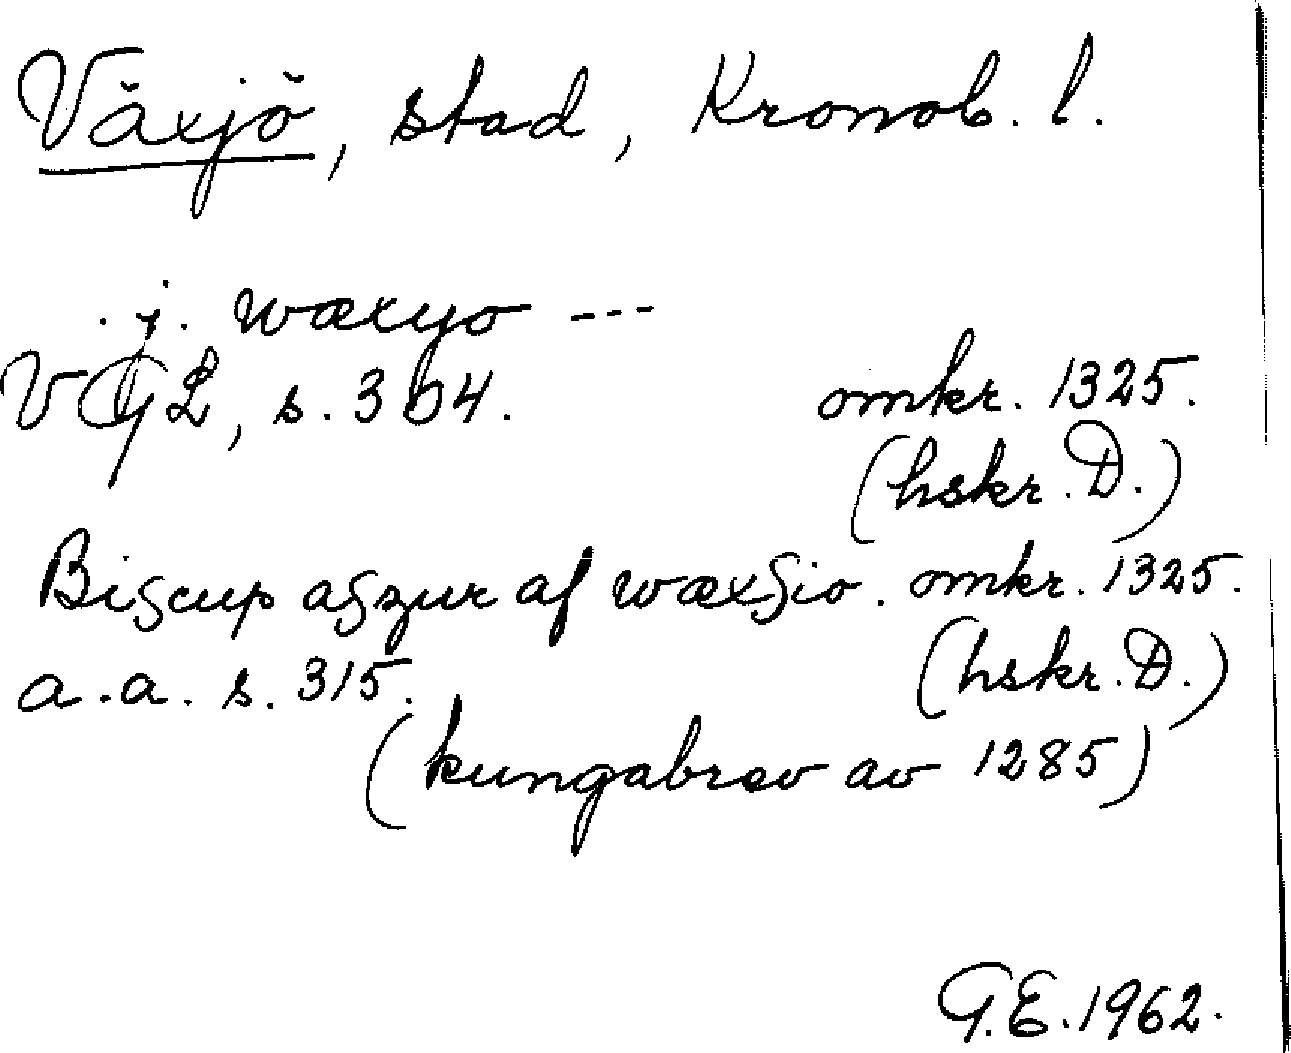 Växjö, stad, Kronob. l.
. j. wæxyo ---
VGL, s. 304. omkr. 1325.
(hskr. D.)
Biscup aszur af wæxsio. omkr. 1325.
a.a. s. 315. (hskr. D.)
(kungabrev av 1285)
G.E. 1962.